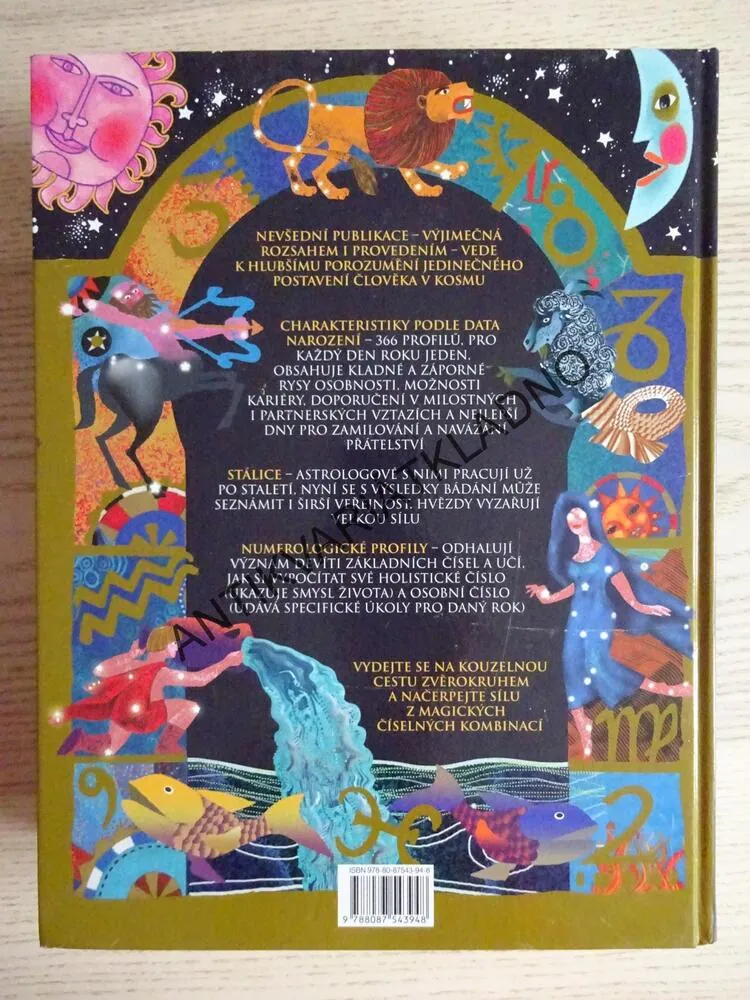 NEVŠEDNÍ PUBLIKACE – VÝJIMEČNÁ
ROZSAHEM I PROVEDENÍM – VEDE
K HLUBŠÍMU POROZUMĚNÍ JEDINEČNÉHO
POSTAVENÍ ČLOVĚKA V KOSMU
CHARAKTERISTIKY PODLE DATA
NAROZENÍ – 366 PROFILŮ, PRO
KAŽDÝ DEN ROKU JEDEN,
OBSAHUJE KLADNÉ A ZÁPORNÉ
RYSY OSOBNOSTI, MOŽNOSTI
KARIÉRY, DOPORUČENÍ V MILOSTNÝCH
I PARTNERSKÝCH VZTAZÍCH A NEJLEPŠÍ
DNY PRO ZAMILOVÁNÍ A NAVÁZÁNÍ
PŘÁTELSTVÍ
STÁLICE – ASTROLOGOVÉ S NIMI PRACUJÍ UŽ
PO STALETÍ, NYNÍ SE S VÝSLEDKY BÁDÁNÍ MŮŽE
SEZNÁMIT I ŠIRŠÍ VEŘEJNOST. HVĚZDY VYZAŘUJÍ
VELKOU SÍLU
NUMEROLOGICKÉ PROFILY – ODHALUJÍ
VÝZNAM DEVÍTI ZÁKLADNÍCH ČÍSEL A UČÍ,
JAK SI VYPOČÍTAT SVÉ HOLISTICKÉ ČÍSLO
(UKAZUJE SMYSL ŽIVOTA) A OSOBNÍ ČÍSLO
(UDÁVÁ SPECIFICKÉ ÚKOLY PRO DANÝ ROK)
VYDEJTE SE NA KOUZELNOU
CESTU ZVĚROKRUHEM
A NAČERPEJTE SÍLU
Z MAGICKÝCH
ČÍSELNÝCH KOMBINACÍ
ANTIKVARIATKLADNO
3
8
8
9
2
ISBN 978-80-87543-94-8
9 788087 543948